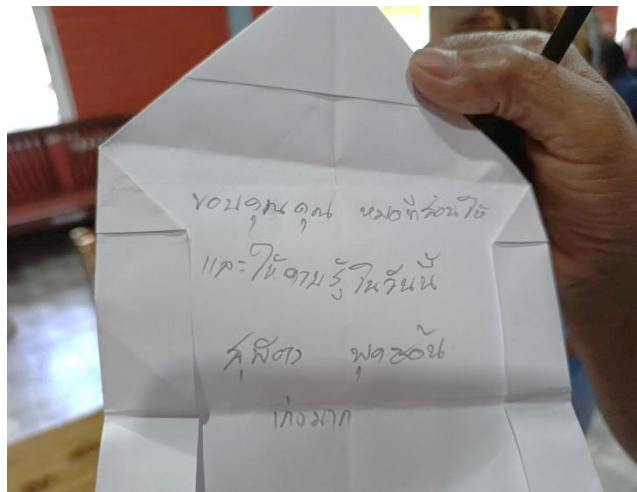 ขอบคุณคุณ หมอที่สอนให้
และให้ความรู้ในวันนี้
เก่งมาก